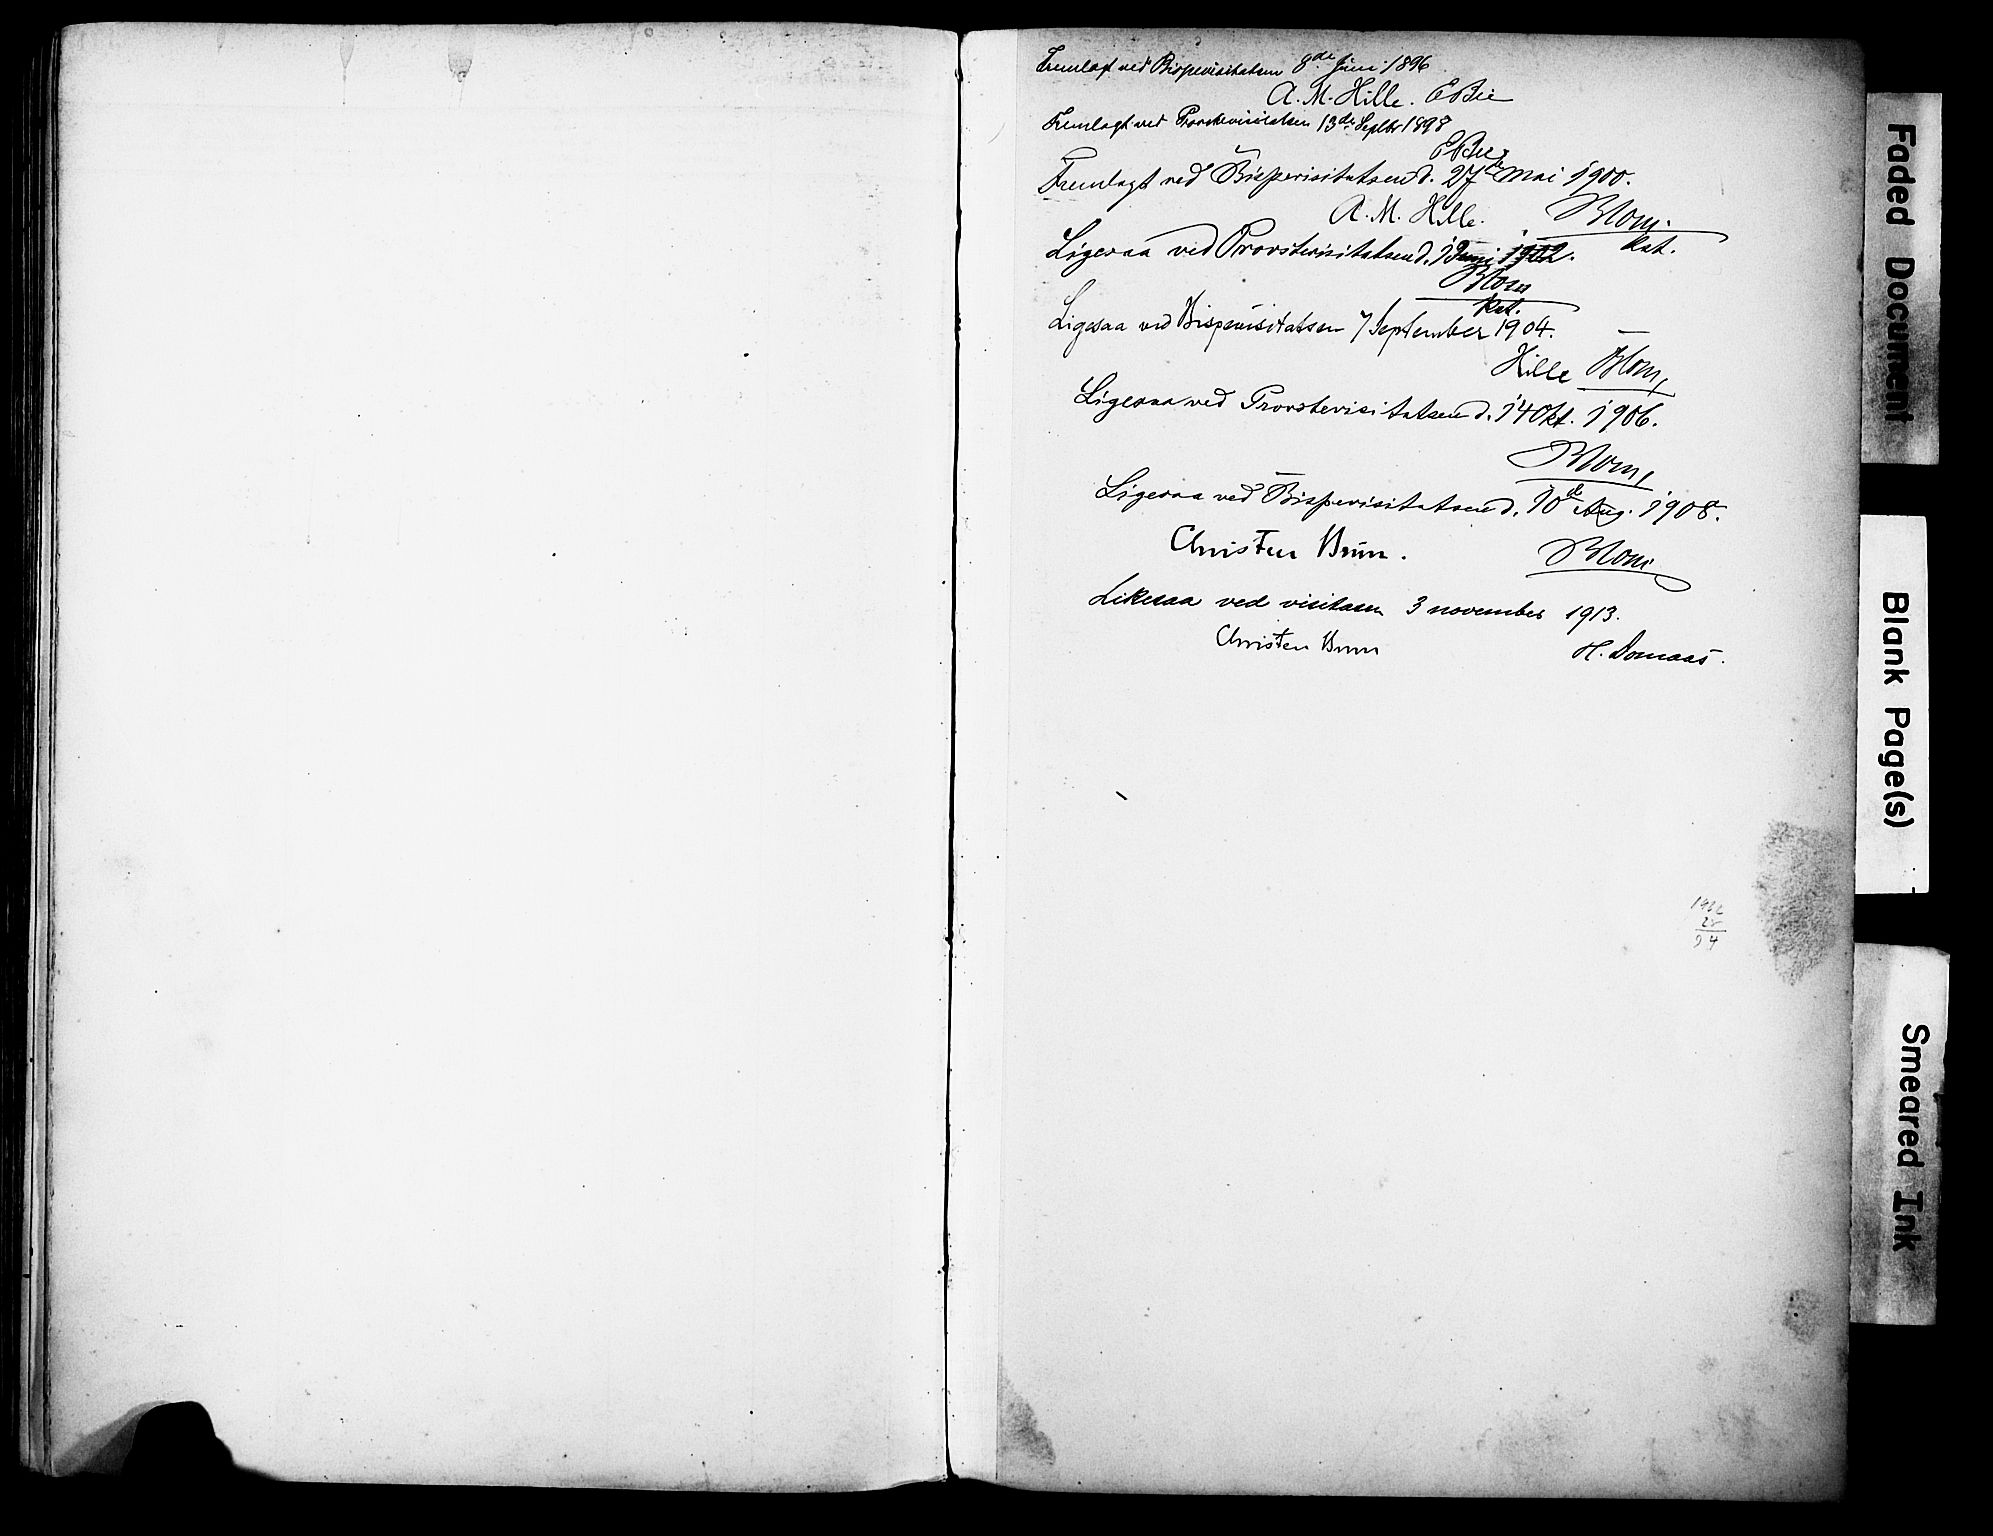 Fremlagt ved Bispevisitatsen 8de Juni 1896
A. M. Hille. EBie
Fremlagt ved Provstevisitatsen 13de Septbr 1898
EBie
Fremlagt ved Bispevisitatsen d. 27de Mai 1900.
A. M. Hille. Blom.
Kat.
Ligesaa ved Provstevisitatsen d. 1 Juni 1902.
Blom
Kat.
Ligesaa ved Bispevisitatsen 7 September 1904.
Hille Blom,
Ligesaa ved Provstevisitatsen d. 14 Okt. 1906.
Blom,
Ligesaa ved Bispevisitatsen d. 10de Aug. 1908.
Christen Brun. Blom
Likesaa ved visitasen 3 november 1913.
Christen Brun H. Domaas.
94
Faded Document
Blank Page(s)
Smeared Ink